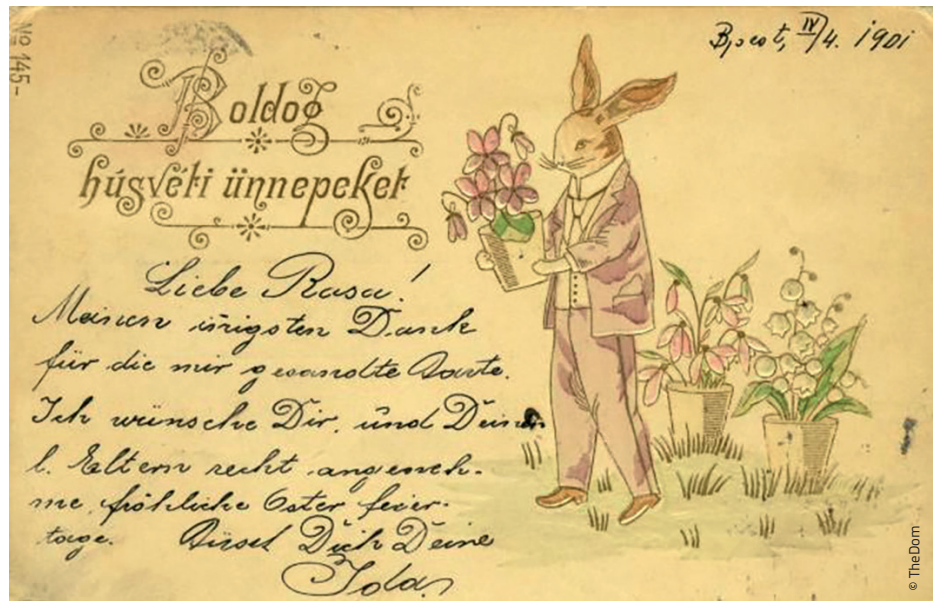 No 145-
Bpest, IV/4. 1901
Boldog
húsvéti ünnepeket
Liebe Rosa!
Meinen innigsten Dank
für die mir gesandte Carte.
Ich wünsche Dir, und Deinen
l. Eltern recht angeneh-
me, fröhliche Oster feier-
tage. Küsst Dich Deine
Ida
© TheDom